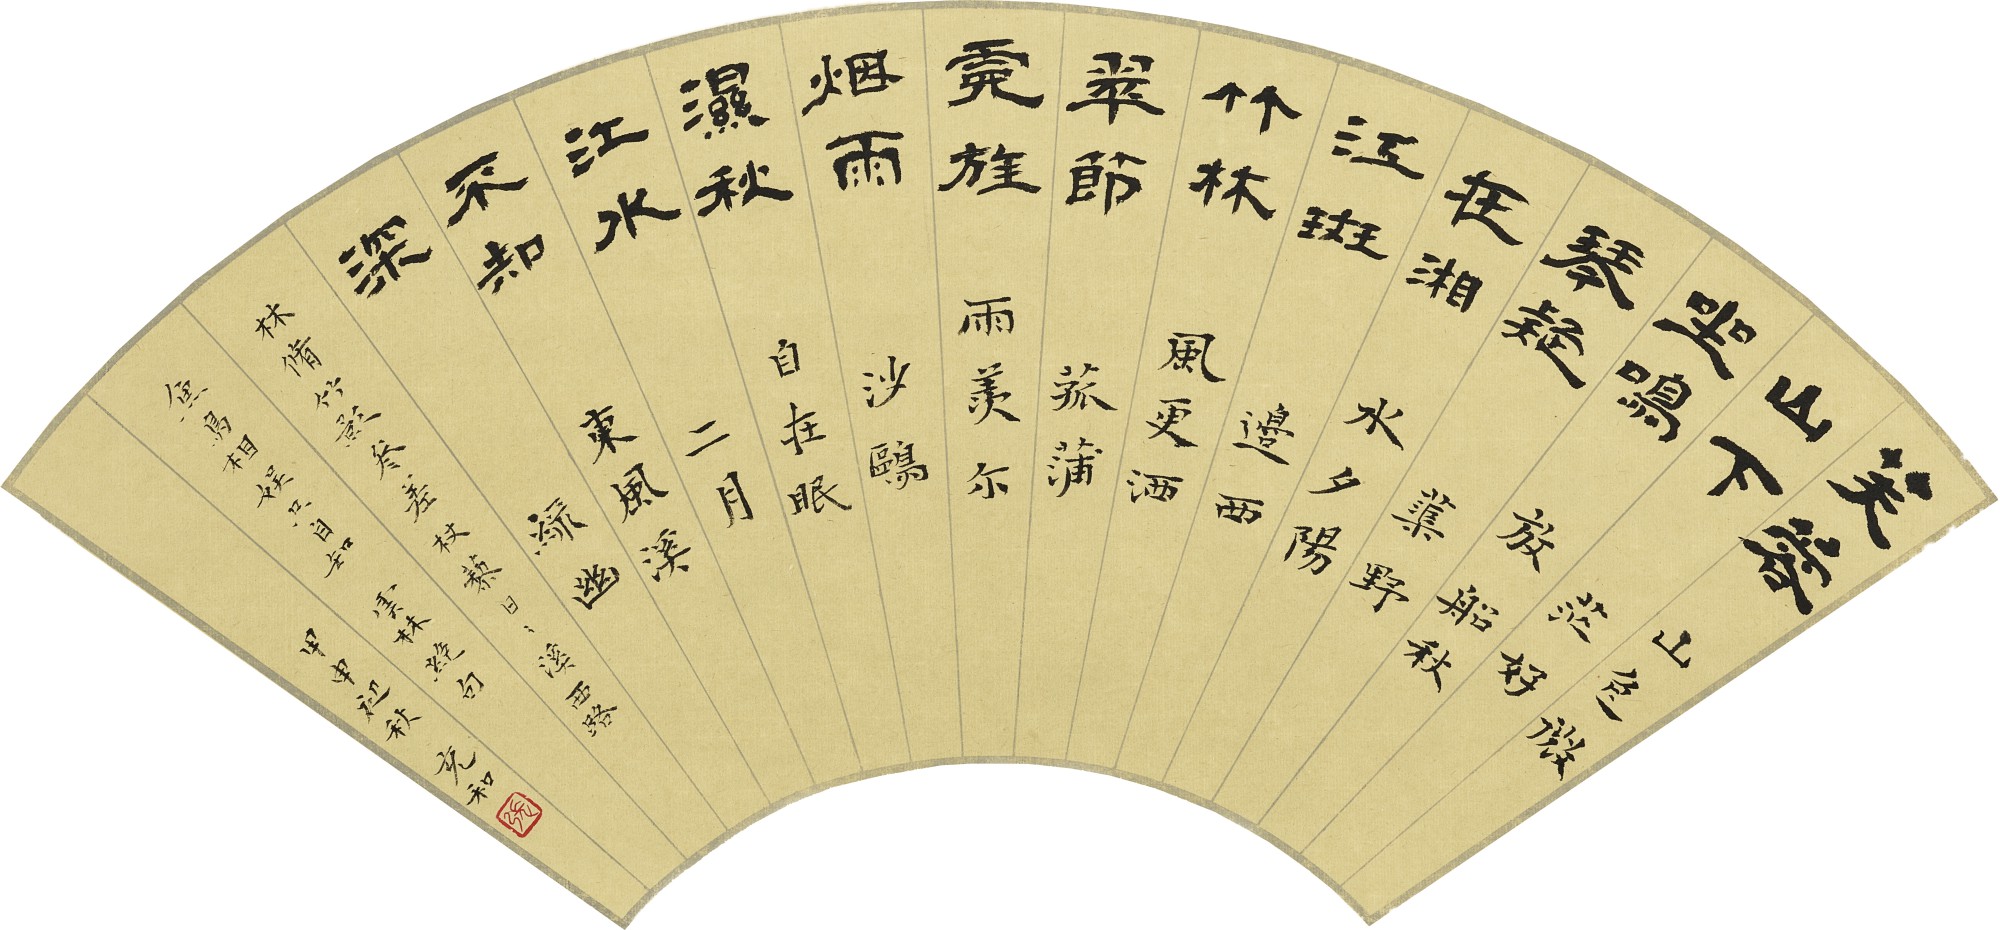 芙蓉
山下
坐鳴
琴疑
在湘
江斑
竹林
翠節
霓旌
烟雨
濕秋
江水
不知
深
山色微
茫好
放船秋
蕖野
水夕陽
邊西
風更洒
菰蒲
雨羨尔
沙鷗
自在眠
二月
東風溪
綠幽
林脩竹影參差杖藜日々溪西路
魚鳥相娛只自知 雲林絕句
甲申初秋 充和